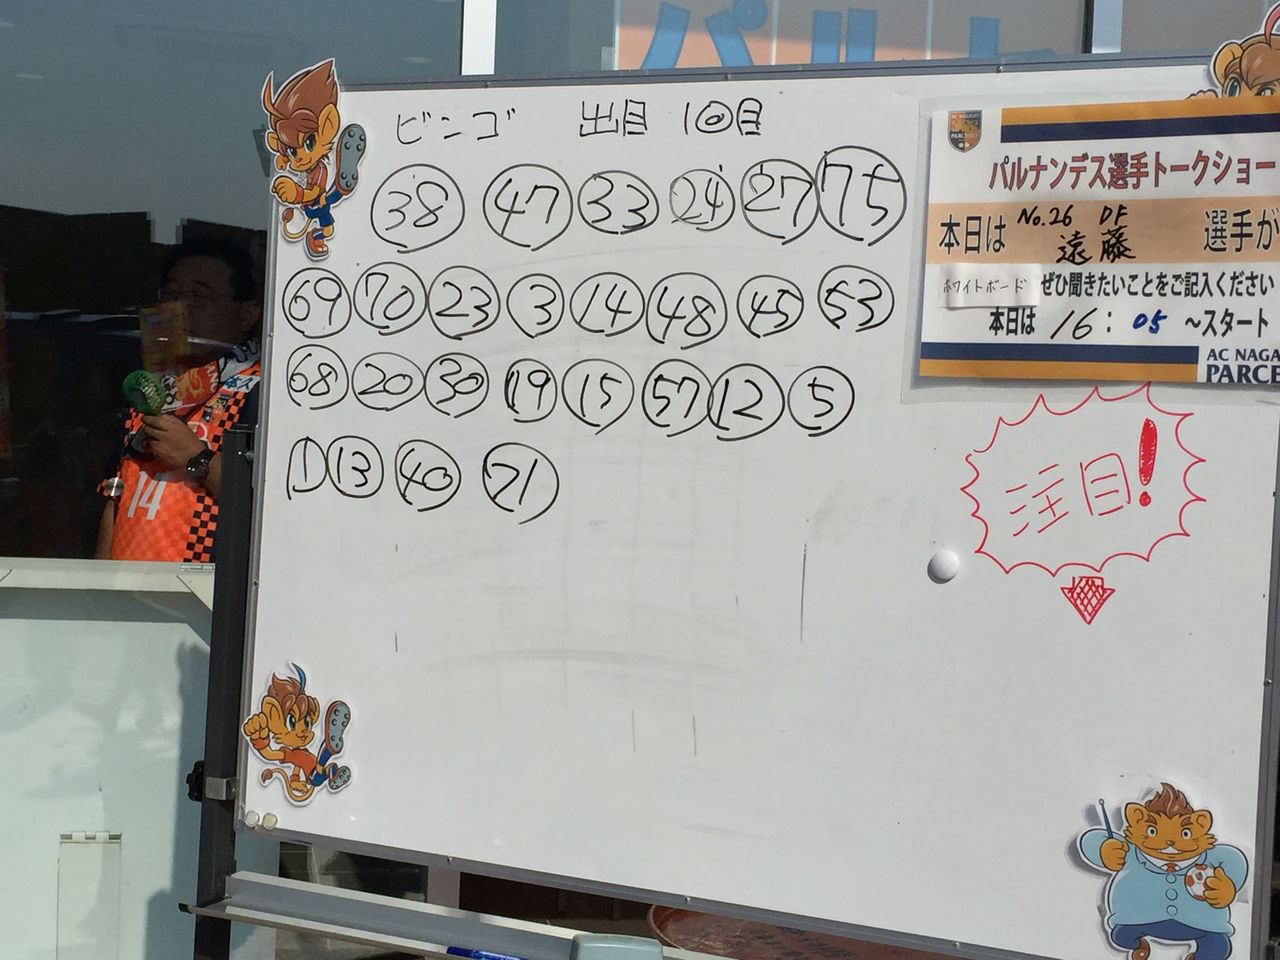 パルナ
ビンゴ 出目 10目
38 47 33 24 27 75
69 70 23 3 14 48 45 53
68 20 30 19 15 57 12 5
1 13 40 71
パルナンデス選手トークショー
本日は No.26 DF 遠藤 選手が
ホワイトボード ぜひ聞きたいことをご記入ください
本日は 16:05 ~スタート
AC NAGA
PARCE
注目!
14